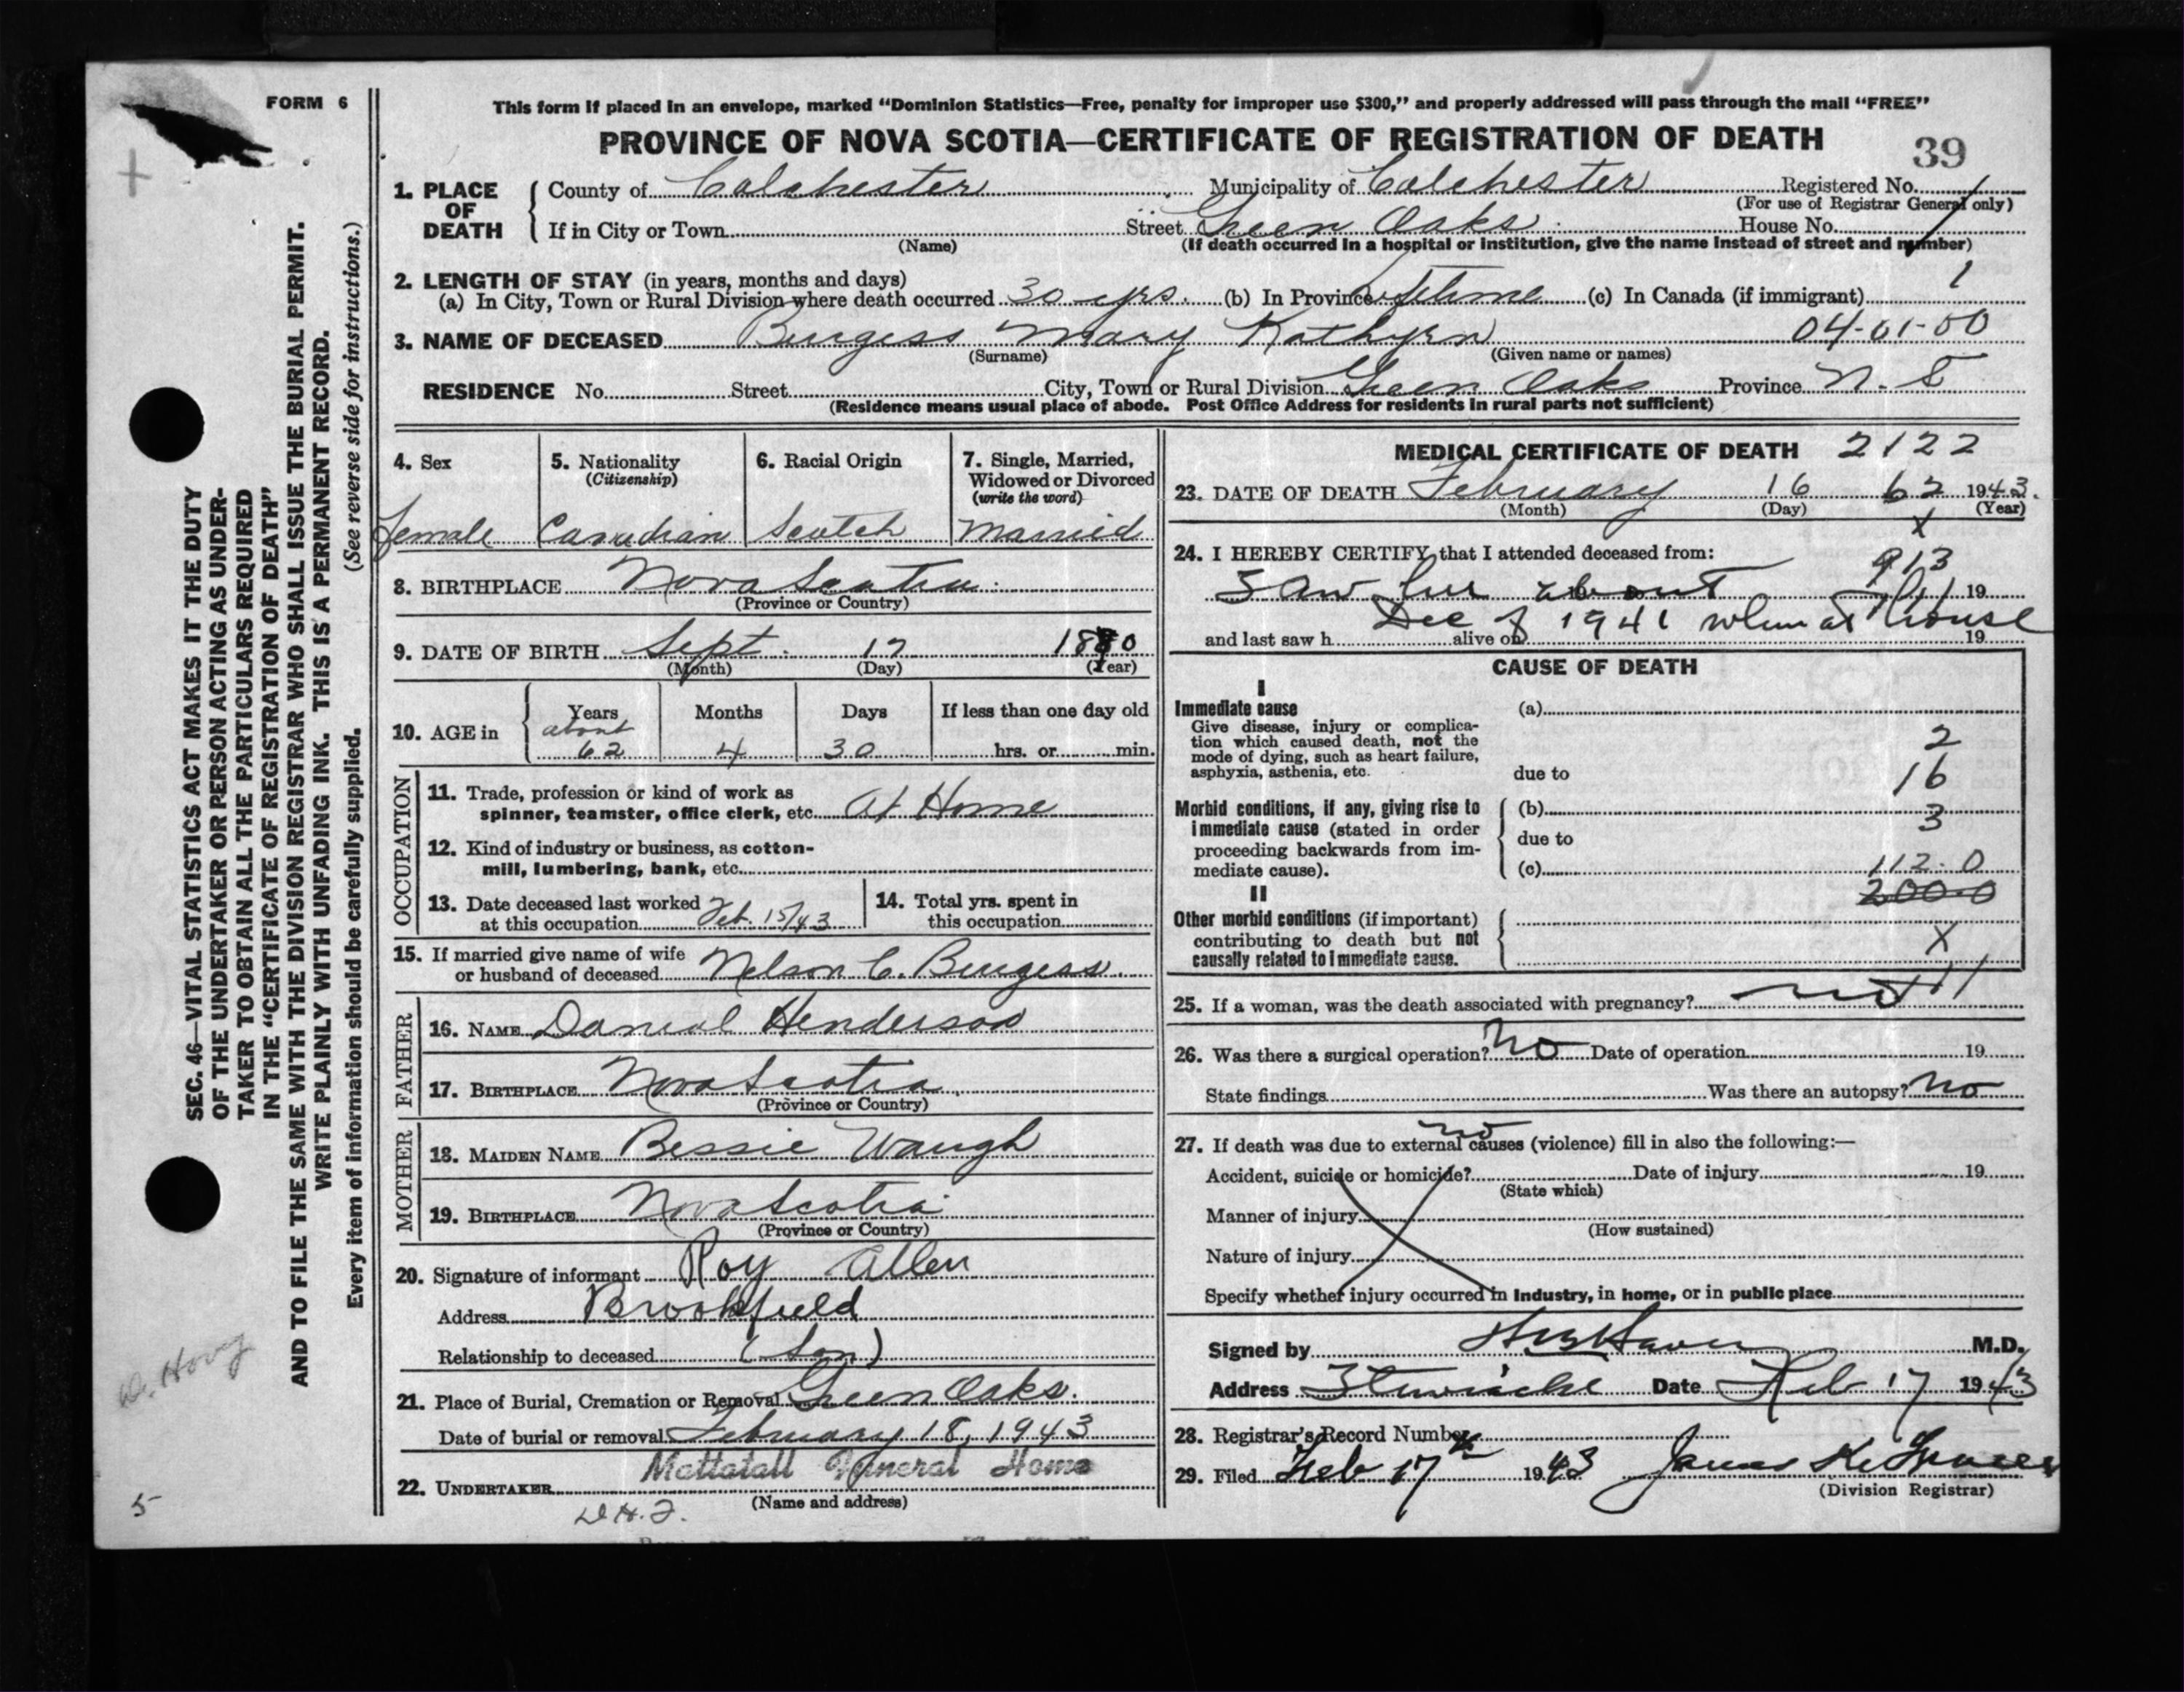 FORM 6
This form if placed in an envelope, marked “Dominion Statistics—Free, penalty for improper use $300,” and properly addressed will pass through the mail “FREE”
PROVINCE OF NOVA SCOTIA—CERTIFICATE OF REGISTRATION OF DEATH
39
1. PLACE OF DEATH { County of Colchester Municipality of Colchester Registered No.
(For use of Registrar General only)
If in City or Town Street Green Oaks House No.
(Name) (If death occurred in a hospital or institution, give the name instead of street and number)
2. LENGTH OF STAY (in years, months and days) 1
(a) In City, Town or Rural Division where death occurred 30 yrs. (b) In Province Lifetime (c) In Canada (if immigrant)
3. NAME OF DECEASED Burgess Mary Kathyrn 04-01-00
(Surname) (Given name or names)
RESIDENCE No. Street City, Town or Rural Division Green Oaks Province N.S
(Residence means usual place of abode. Post Office Address for residents in rural parts not sufficient)
4. Sex 5. Nationality (Citizenship) 6. Racial Origin 7. Single, Married, Widowed or Divorced (write the word)
Female Canadian Scotch Married
8. BIRTHPLACE Nova Scotia
(Province or Country)
9. DATE OF BIRTH Sept. 17 1880
(Month) (Day) (Year)
10. AGE in { Years Months Days If less than one day old
about
62 4 30 hrs. or min.
OCCUPATION
11. Trade, profession or kind of work as
spinner, teamster, office clerk, etc. At Home
12. Kind of industry or business, as cotton-
mill, lumbering, bank, etc.
13. Date deceased last worked at this occupation Feb. 15/43 14. Total yrs. spent in this occupation
15. If married give name of wife
or husband of deceased Nelson C. Burgess
FATHER
16. NAME Danial Henderson
17. BIRTHPLACE Nova Scotia
(Province or Country)
MOTHER
18. MAIDEN NAME Bessie Waugh
19. BIRTHPLACE Nova Scotia
(Province or Country)
20. Signature of informant Roy Allen
Address Brookfield
Relationship to deceased (Son)
21. Place of Burial, Cremation or Removal Green Oaks.
Date of burial or removal February 18, 1943
22. UNDERTAKER Mattatall Funeral Home
(Name and address)
MEDICAL CERTIFICATE OF DEATH 2122
23. DATE OF DEATH February 16 62 1943.
(Month) (Day) (Year)
X
24. I HEREBY CERTIFY that I attended deceased from: 913
Saw her about 19
Dec of 1941 when at house
and last saw h alive on 19
CAUSE OF DEATH
I
Immediate cause (a)
Give disease, injury or complica-
tion which caused death, not the
mode of dying, such as heart failure,
asphyxia, asthenia, etc. due to
2
16
Morbid conditions, if any, giving rise to
immediate cause (stated in order
proceeding backwards from im-
mediate cause). { (b)
3
due to
(c) 112.0
200-0
II
Other morbid conditions (if important)
contributing to death but not
causally related to immediate cause.
X
25. If a woman, was the death associated with pregnancy? not
26. Was there a surgical operation? No Date of operation 19
State findings Was there an autopsy? No
27. If death was due to external causes (violence) fill in also the following:—
no
Accident, suicide or homicide? Date of injury 19
(State which)
Manner of injury
(How sustained)
Nature of injury
Specify whether injury occurred in industry, in home, or in public place
Signed by M.D.
Address Stewiacke Date Feb 17 1943
28. Registrar's Record Number
29. Filed Feb 17th 1943 James
(Division Registrar)
SEC. 46—VITAL STATISTICS ACT MAKES IT THE DUTY
OF THE UNDERTAKER OR PERSON ACTING AS UNDER-
TAKER TO OBTAIN ALL THE PARTICULARS REQUIRED
IN THE “CERTIFICATE OF REGISTRATION OF DEATH”
AND TO FILE THE SAME WITH THE DIVISION REGISTRAR WHO SHALL ISSUE THE BURIAL PERMIT.
WRITE PLAINLY WITH UNFADING INK. THIS IS A PERMANENT RECORD.
Every item of information should be carefully supplied. (See reverse side for instructions.)
5